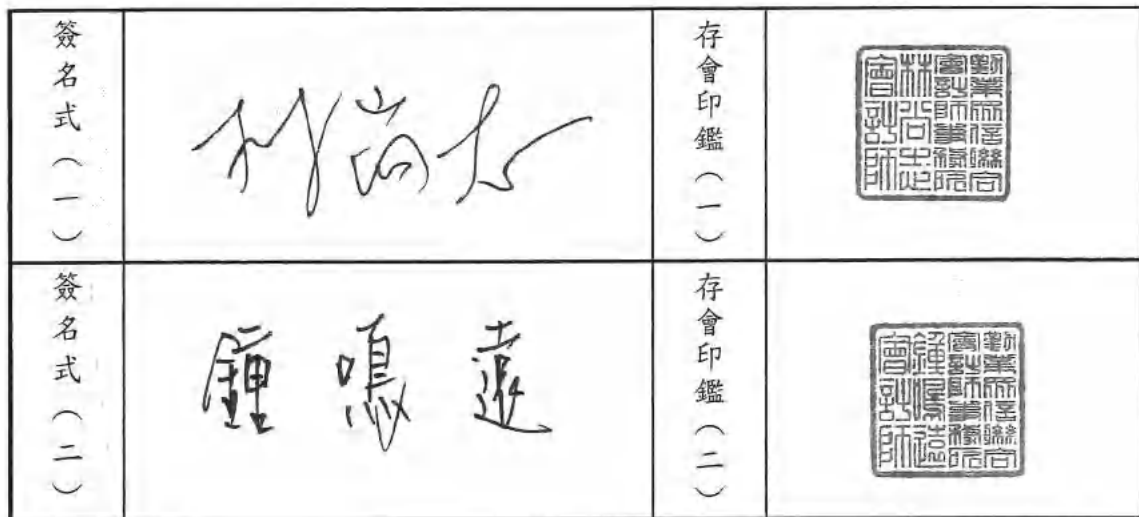 簽名式（一）
林尚志
存會印鑑（一）
勤業眾信聯合
會計師事務所
林尚志
會計師
簽名式（二）
鍾鳴遠
存會印鑑（二）
勤業眾信聯合
會計師事務所
鍾鳴遠
會計師